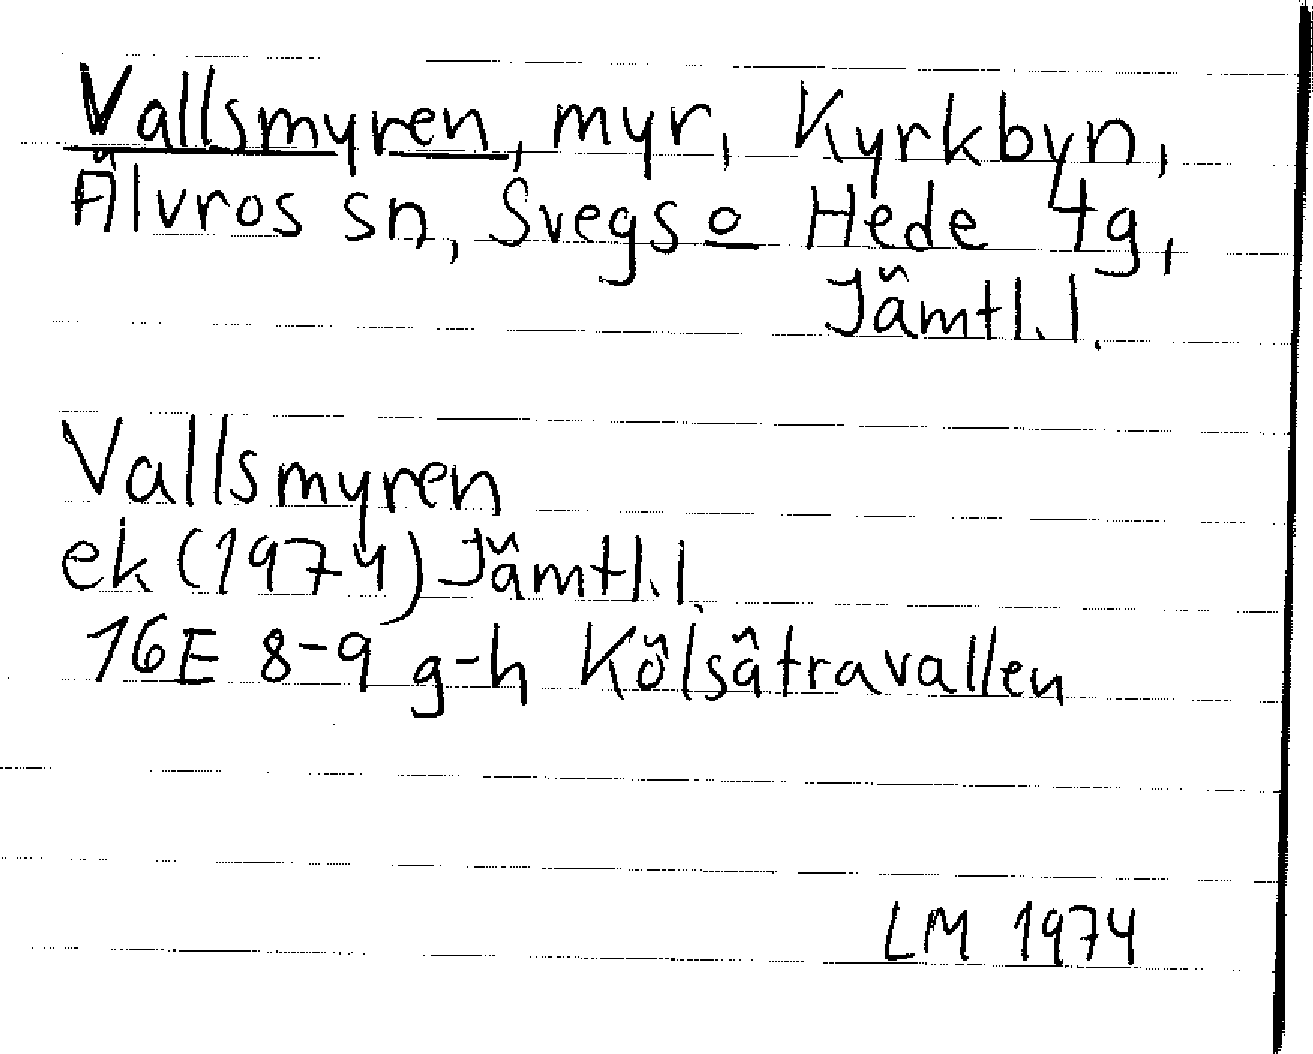 Vallsmyren, myr, Kyrkbyn,
Älvros sn, Svegs o Hede tg,
Jämtl. l.
Vallsmyren
ek (1974) Jämtl. l.
16E 8-9 g-h Kölsätravallen
LM 1974